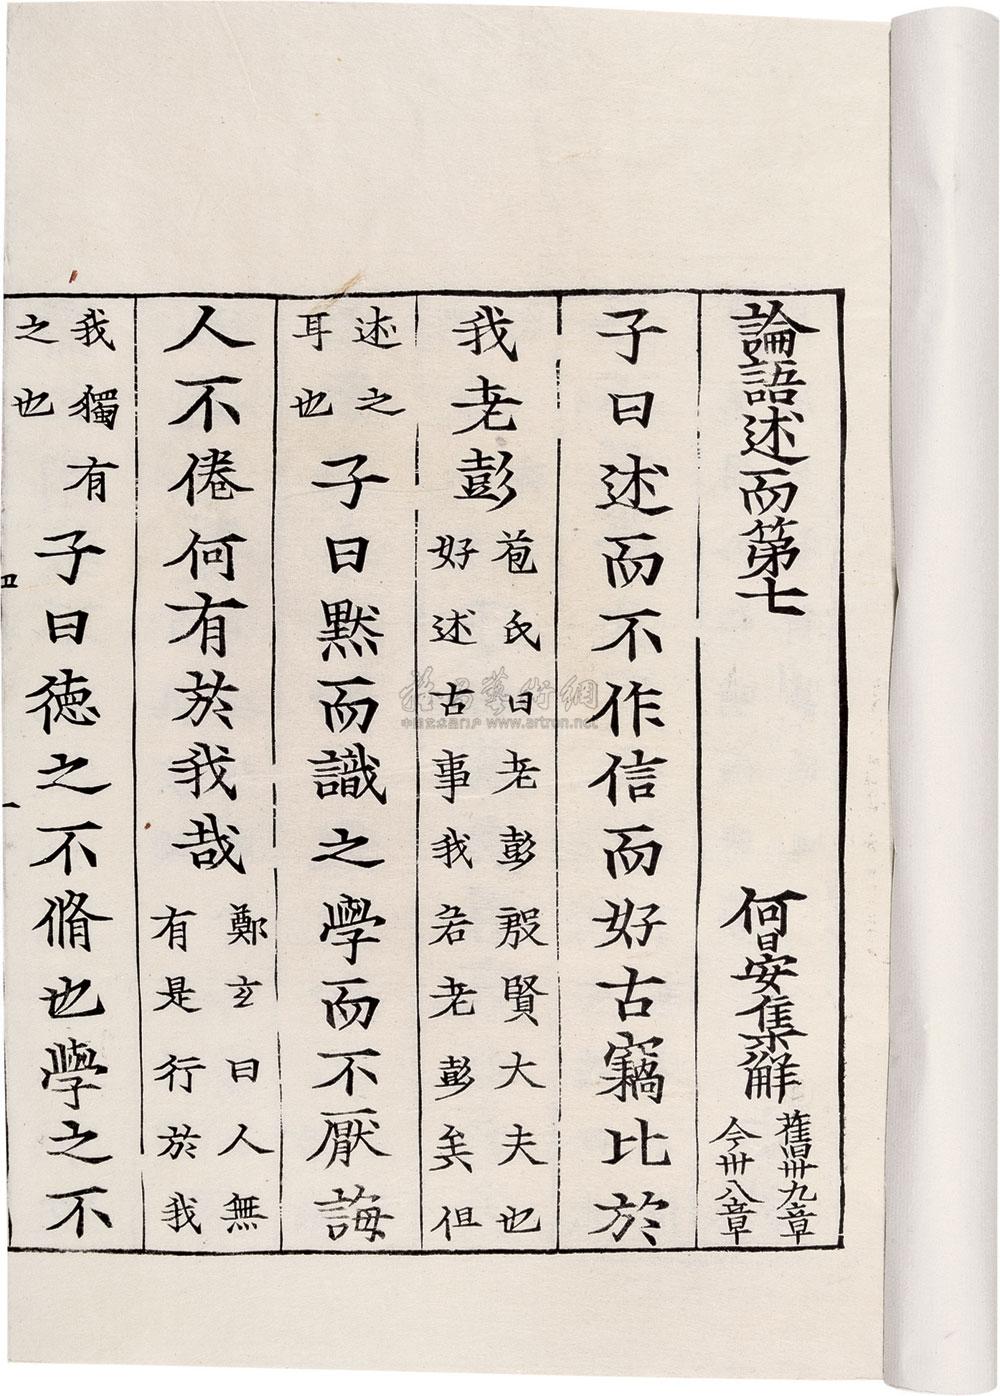 論語述而第七 何晏集觧 舊卌九章 今卌八章
子曰述而不作信而好古竊比於
我老彭 苞氏曰老彭殷賢大夫也 好述古事我若老彭矣但
述之 耳也 子曰黙而識之學而不厭誨
人不倦何有於我哉 鄭玄曰人無 有是行於我
我獨有 之也 子曰徳之不脩也學之不
四
一
中国艺术品门户 www.artron.net